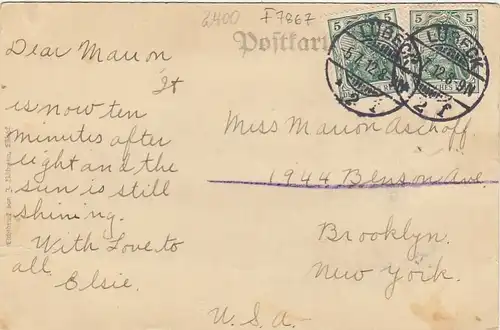 2,400 F7867
Postkarte
5 5 5 5
LÜBECK LÜBECK
2 f 2 f
Dear Marion
It
is now ten
minutes after
eight and the
sun is still
shining.
With Love to
all.
Elsie.
Miss Marion Aschoff
1944 Benson Ave.
Brooklyn.
New York.
U.S.A.